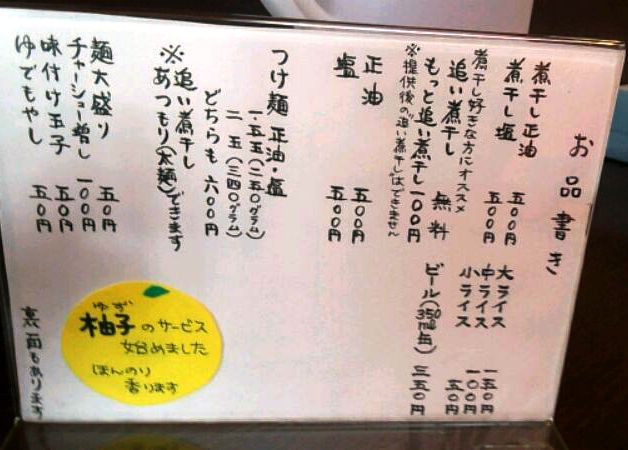 お品書き
煮干し正油 五〇〇円
煮干し塩 五〇〇円
煮干し好きな方にオススメ
追い煮干し 無料
もっと追い煮干し 一〇〇円
※提供後の"追い煮干し"はできません
正油 五〇〇円
塩 五〇〇円
つけ麺 正油・塩
一.五玉(二五〇グラム)
二.五(三四〇グラム)
どちらも 六〇〇円
※追い煮干し
あつもり(太麺)できます
麺大盛り 五〇円
チャーシュー増し 一〇〇円
味付け玉子 五〇円
ゆでもやし 五〇円
大ライス 一五〇円
中ライス 一〇〇円
小ライス 五〇円
ビール(350ml缶) 三五〇円
ゆず
柚子のサービス
始めました
ほんのり
香ります
裏面もあります